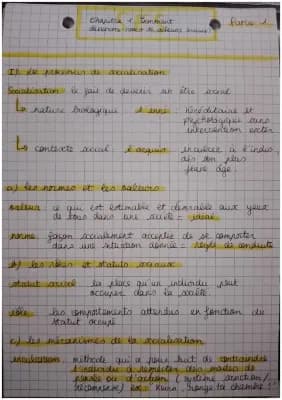 Chapitre 1. Comment
devenons-nous des acteurs sociaux?
Partie 1.
I) Le processus de socialisation
Socialisation: le fait de devenir un être social
↳ nature biologique l'inné : héréditaire et
psychologique sans
intervention exter
↳ contexte social l'acquis: inculcé à l'indiv.
dès son plus
jeune âge.
a) les normes et les valeurs
valeur: ce qui est estimable et désirable aux yeux
de tous dans une société = idéal
norme: façon socialement acceptée de se comporter
dans une situation donnée = règle de conduite
b) les rôles et statuts sociaux
statut social: la place qu'un individu peut
occuper dans la société.
rôle: les comportements attendus en fonction du
statut occupé
c) les mécanismes de la socialisation
inculcation: méthode qui a pour but de contraindre
l'individu à respecter des modes de
pensée ou d'action (système sanction/
récompense) ex: " range ta chambre!"